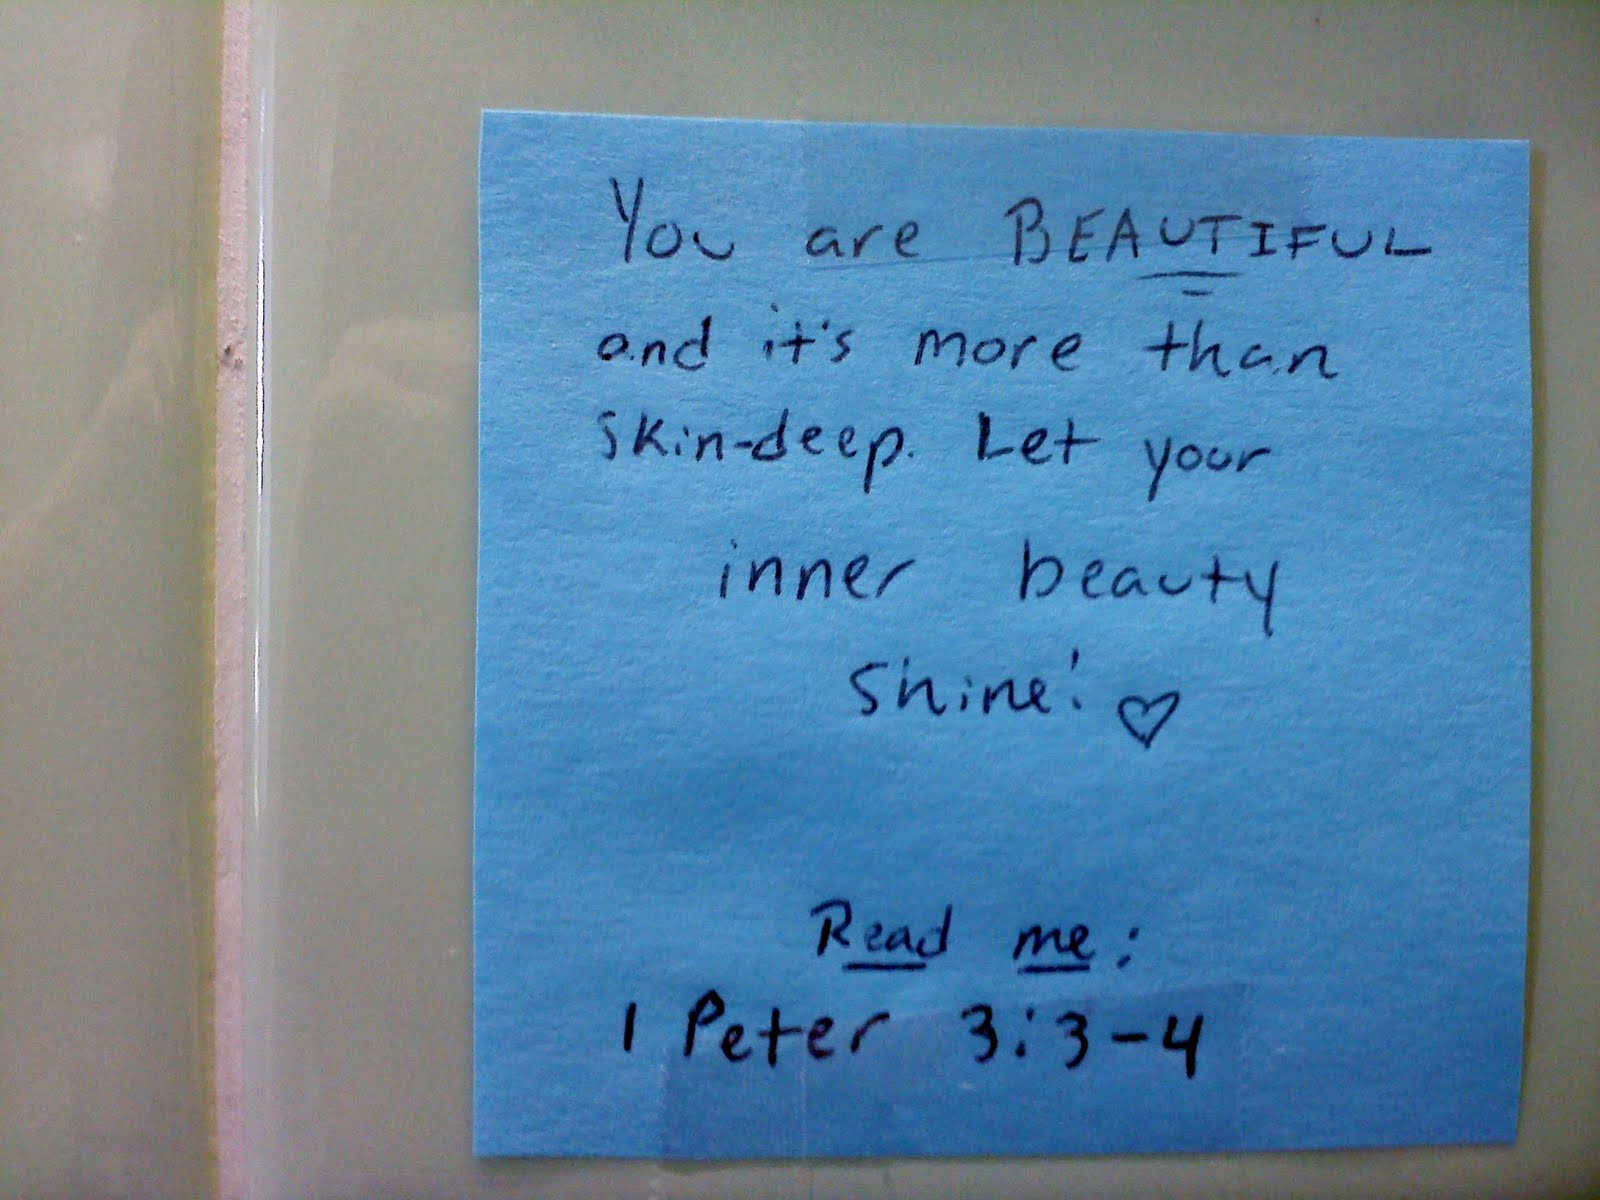 You are BEAUTIFUL
and it's more than
skin-deep. Let your
inner beauty
shine! ♡
Read me:
1 Peter 3:3-4